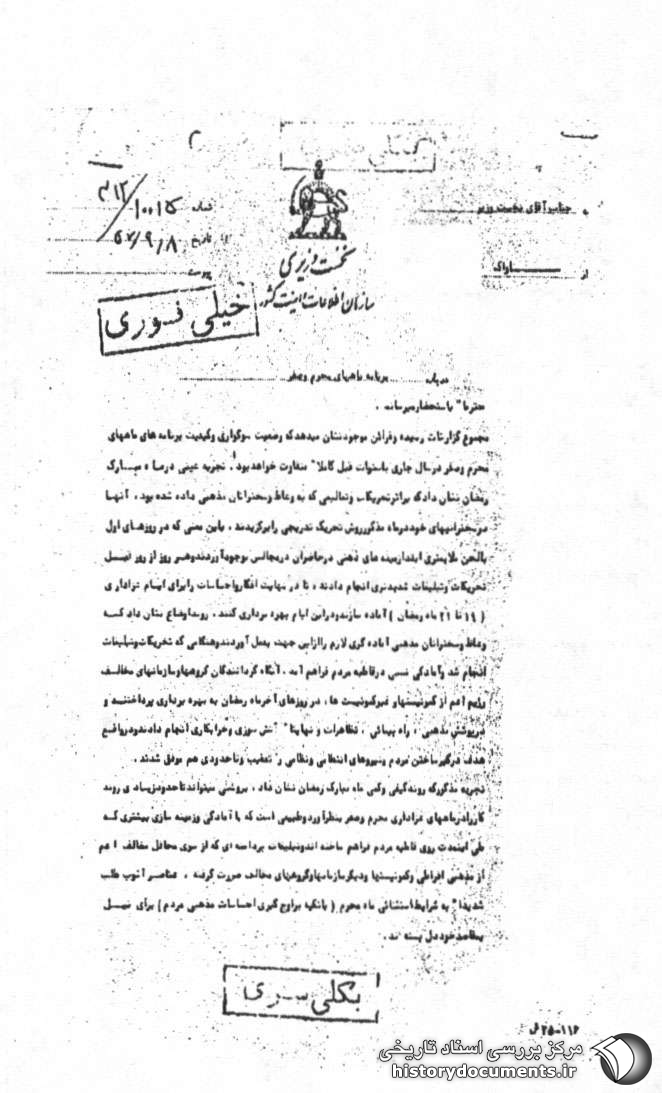 بکلی سری
جناب آقای نخست وزیر
از ساواک
شماره ۳۱۲/۱۰۰۱۵
تاریخ ۵۷/۹/۸
پیوست
نخست وزیری
سازمان اطلاعات و امنیت کشور
خیلی فوری
درباره برنامه ماههای محرم و صفر
محترما" باستحضار میرساند .
مجموع گزارشات رسیده و قرائن موجود نشان میدهد که وضعیت سوگواری و کیفیت برنامه های ماههای
محرم و صفر در سال جاری با سنوات قبل کاملا" متفاوت خواهد بود . تجربه عینی در ماه مبارک
رمضان نشان داد که بر اثر تحریکات و تعالیمی که به وعاظ و سخنرانان مذهبی داده شده بود ، آنها
در سخنرانیهای خود در ماه مذکور روش تحریک تدریجی را برگزیدند ، باین معنی که در روزهای اول
با لحن ملایمتری ابتدا زمینه های ذهنی در حاضران در مجالس بوجود آوردند و هر روز از روز قبل
تحریکات و تبلیغات شدیدتری انجام دادند ، تا در نهایت افکار و احساسات را برای ایام عزاداری
( ۱۹ تا ۲۱ ماه رمضان ) آماده سازند و در این ایام بهره برداری کنند . روند اوضاع نشان داد که
وعاظ و سخنرانان مذهبی آماده گری لازم را از این جهت بعمل آوردند و هنگامی که تحریکات و تبلیغات
انجام شد و آمادگی نسبی در قاطبه مردم فراهم آمد ، آنگاه گردانندگان گروهها و سازمانهای مخالف
رژیم اعم از کمونیستها و غیرکمونیست ها ، در روزهای آخر ماه رمضان به بهره برداری پرداختند و
در پوشش مذهبی ، راه پیمائی ، تظاهرات و نهایتا" آتش سوزی و خرابکاری انجام دادند و در واقع
هدف درگیر ساختن مردم و نیروهای انتظامی و نظامی را تعقیب و تا حدودی هم موفق شدند .
تجربه مذکور که روند کیفی و کمی ماه مبارک رمضان نشان داد ، بروشنی میتواند تا حدود زیادی روند
کار را در ماههای عزاداری محرم و صفر بنظر آورد و طبیعی است که با آمادگی و زمینه سازی بیشتری که
طی اینمدت روی قاطبه مردم فراهم ساخته اند و تبلیغات پردامنه ای که از سوی محافل مخالف اعم
از مذهبی افراطی و کمونیستها و دیگر سازمانها و گروههای مخالف صورت گرفته ، عناصر آشوب طلب
شدیدا" به شرایط استثنائی ماه محرم ( با تکیه بر اوج گیری احساسات مذهبی مردم ) برای نیل
بمقاصد خود دل بسته اند .
بکلی سری
۱۱۶-۲۵ ف
مرکز بررسی اسناد تاریخی
historydocuments.ir